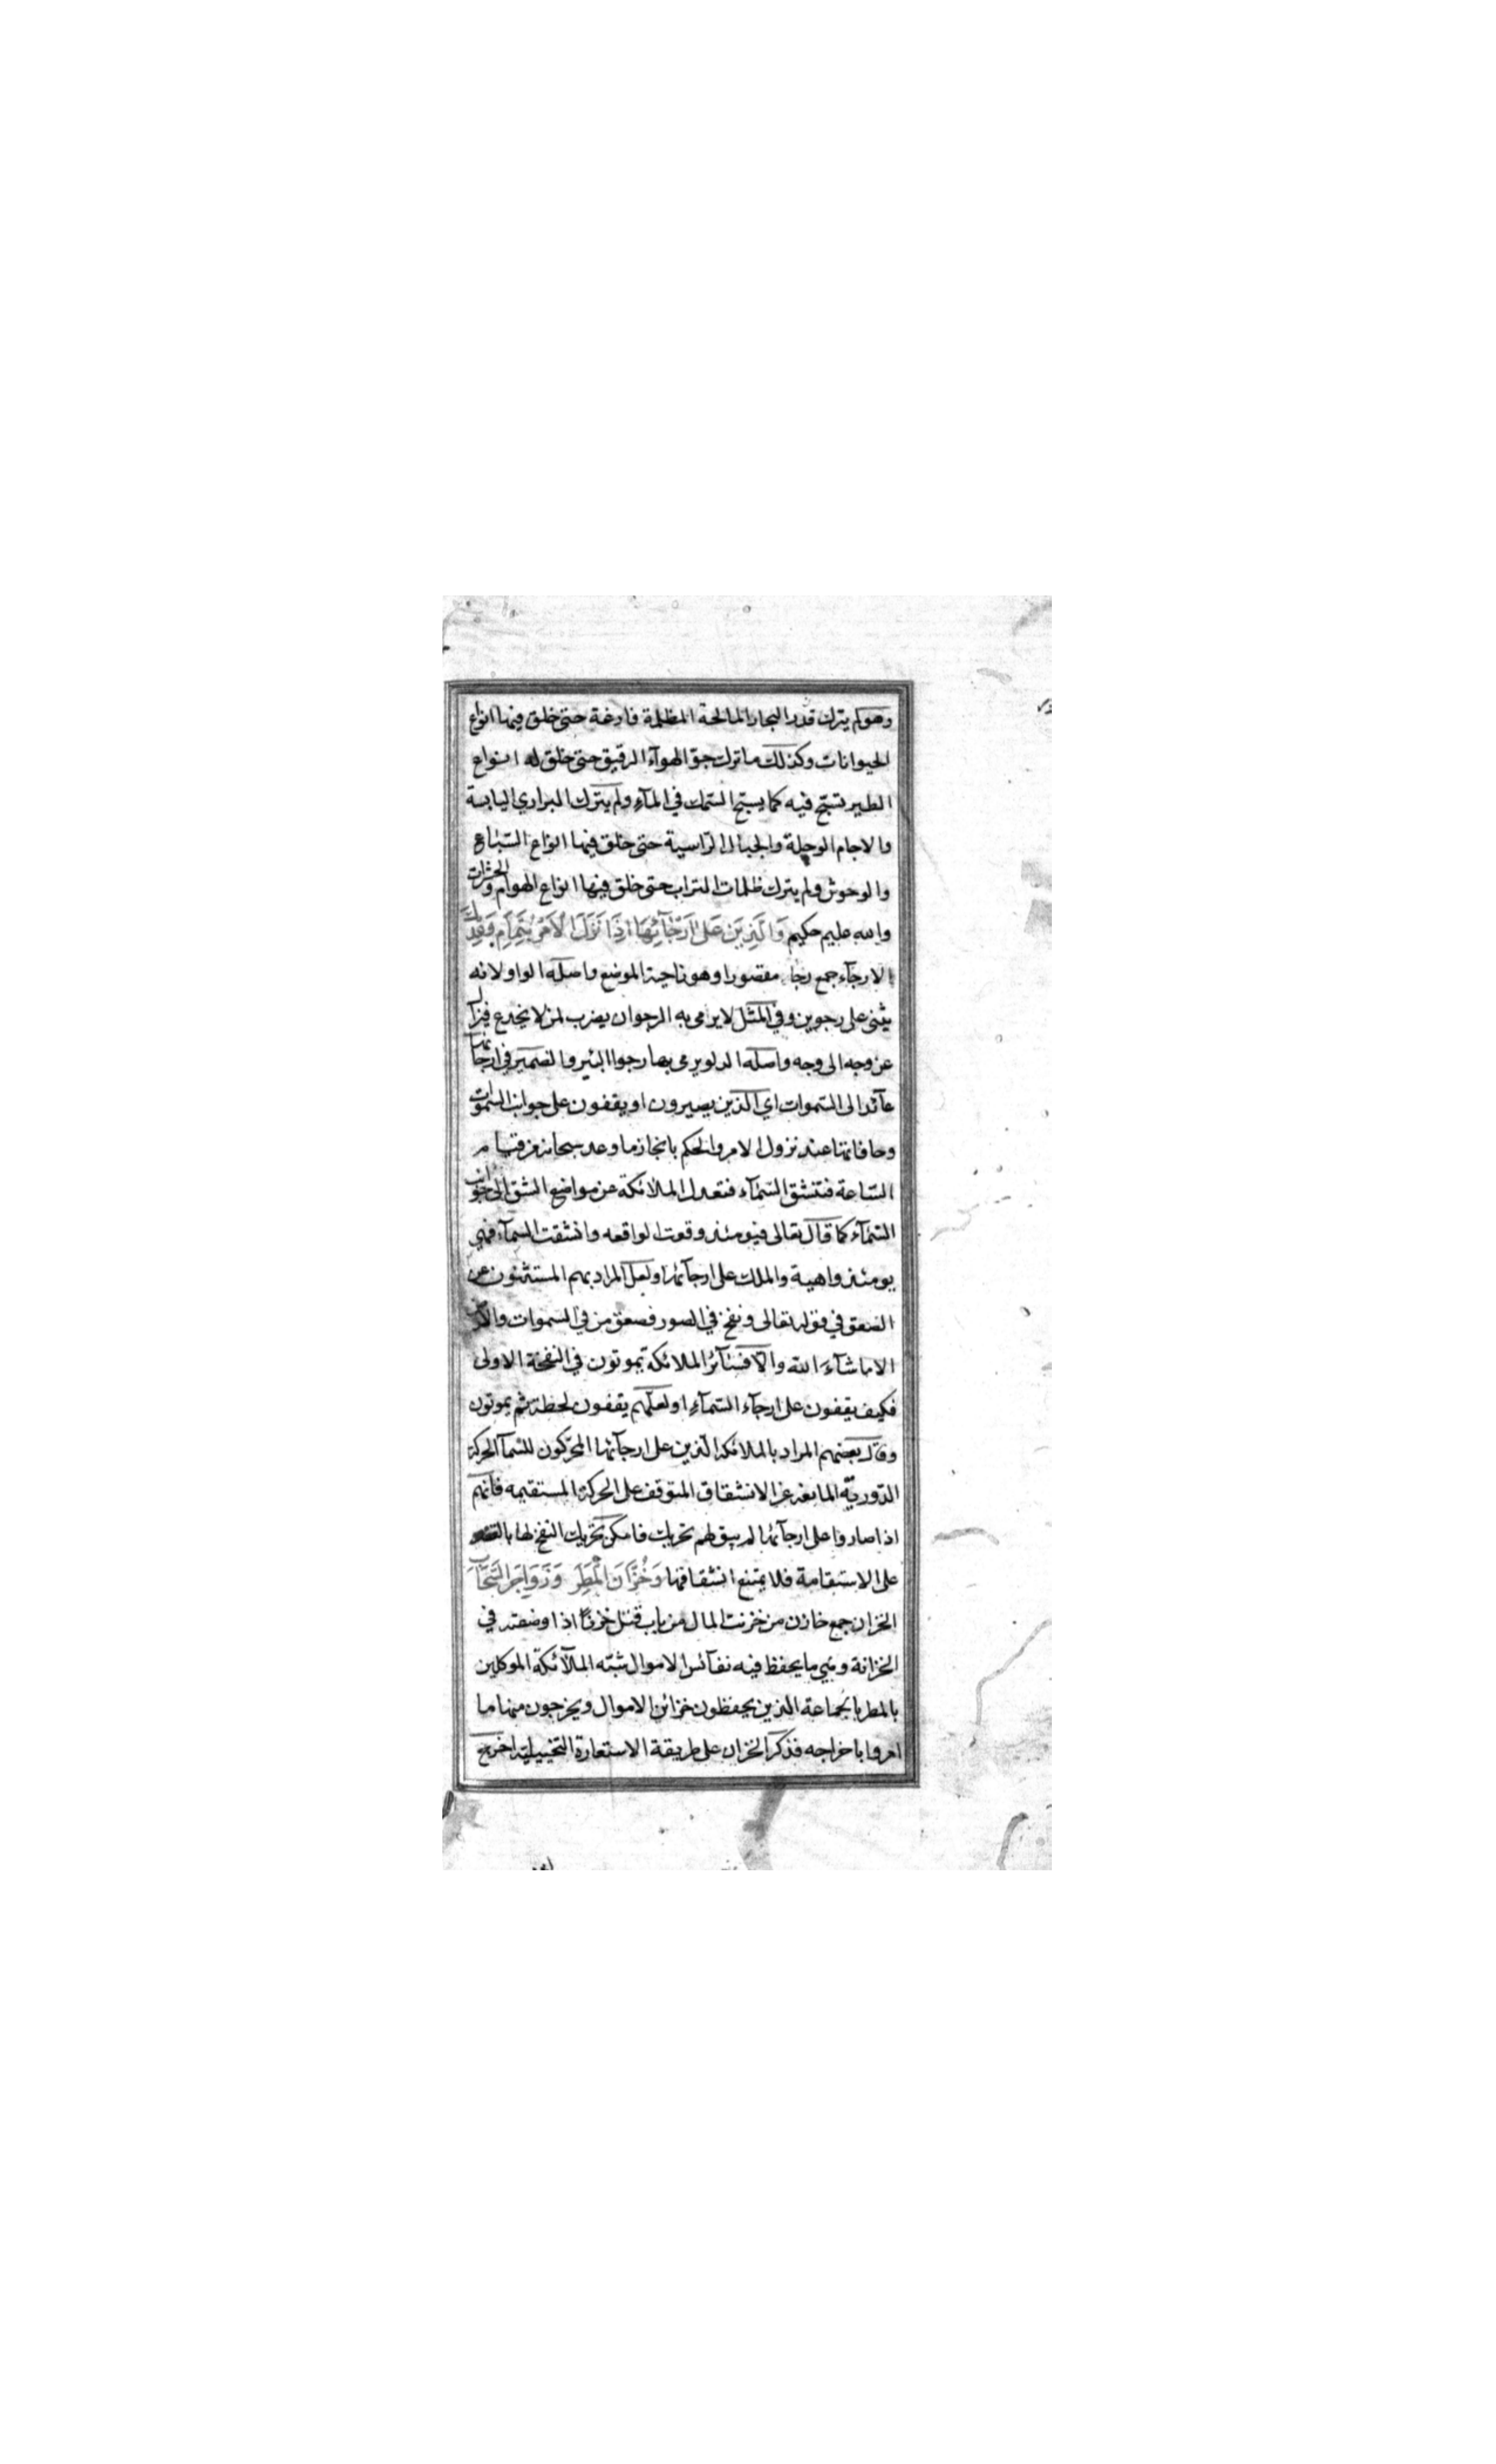 وهو لم يترك قدر البحار المالحة المظلمة فارغة حتى خلق فيها انواع
الحيوانات وكذلك ما ترك جو الهوآء الرقيق حتى خلق له انواع
الطير تسبح فيه كما يسبح السّمك في المآء ولم يترك البراري اليابسة
والاجام الوحلة والجبال الرّاسية حتى خلق فيها انواع السّباع
والوحوش ولم يترك ظلمات التراب حتى خلق فيها انواع الهوام والحشرات
والله عليم حكيم وَالَّذِينَ عَلىٰ اَرْجَآئِهَا اِذَا نَزَلَ الْاَمْرُ بِتَمَامِ وَعْدِكَ
الارجآء جمع رجا مقصورا وهو ناحية الموضع واصله الواو لانه
يثنى على رجوين وفي المثل لا يرمى به الرجوان يضرب لمن لا يخدع فيزال
عن وجه الى وجه واصله الدلو يرمى بها رجوا البئر والضمير في ارجآئها
عآئد الى السّموات اي الذين يصيرون او يقفون على جوانب السّموات
وحافاتها عند نزول الامر والحكم بانجاز ما وعد سبحانه من قيام
السّاعة فتنشق السّمآء فتعدل الملائكة عن مواضع الشق الى جوانب
السّمآء كما قال تعالى فيومئذ وقعت الواقعه وانشقت السمآء فهي
يومئذ واهية والملك على ارجآئها ولعل المراد بهم المستثنون عن
الصعق في قوله تعالى ونفخ في الصور فصعق من في السموات والارض
الا ما شآءَ الله والّا فسآئر الملائكة يموتون في النفخة الاولى
فكيف يقفون على ارجآء السّمآء او لعلّهم يقفون لحظة ثم يموتون
وقال بعضهم المراد بالملائكة الّذين على ارجآئها المحرّكون للسّمآ الحركة
الدّوريّة المانعة عن الانشقاق المتوقف على الحركة المستقيمه فانّهم
اذا صاروا على ارجآئها لم يبق لهم تحريك فامكن تحريك النفخ لها
على الاستقامة فلا يمتنع انشقاقها وَخُزَّانِ الْمَطَرِ وَزَوَاجِرِ السَّحَابِ
الخزان جمع خازن من خزنت المال من باب قتل خزنًا اذا وضعته في
الخزانة وهي ما يحفظ فيه نفآئس الاموال شبّه الملآئكة الموكلين
بالمطر بالجماعة الذين يحفظون خزائن الاموال ويخرجون منها ما
امروا باخراجه فذكر الخزان على طريقة الاستعارة التخييلية اخرج